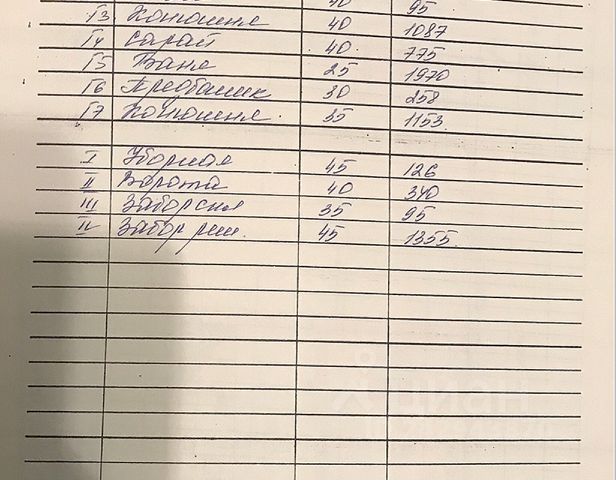 40 95
Г3 Конюшня 40 1087
Г4 сарай 40 775
Г5 Баня 25 1970
Г6 Предбаник 30 258
Г7 Конюшня 35 1153
I Уборная 45 126
II Ворота 40 340
III Забор 35 95
IV Забор 45 1355
циан